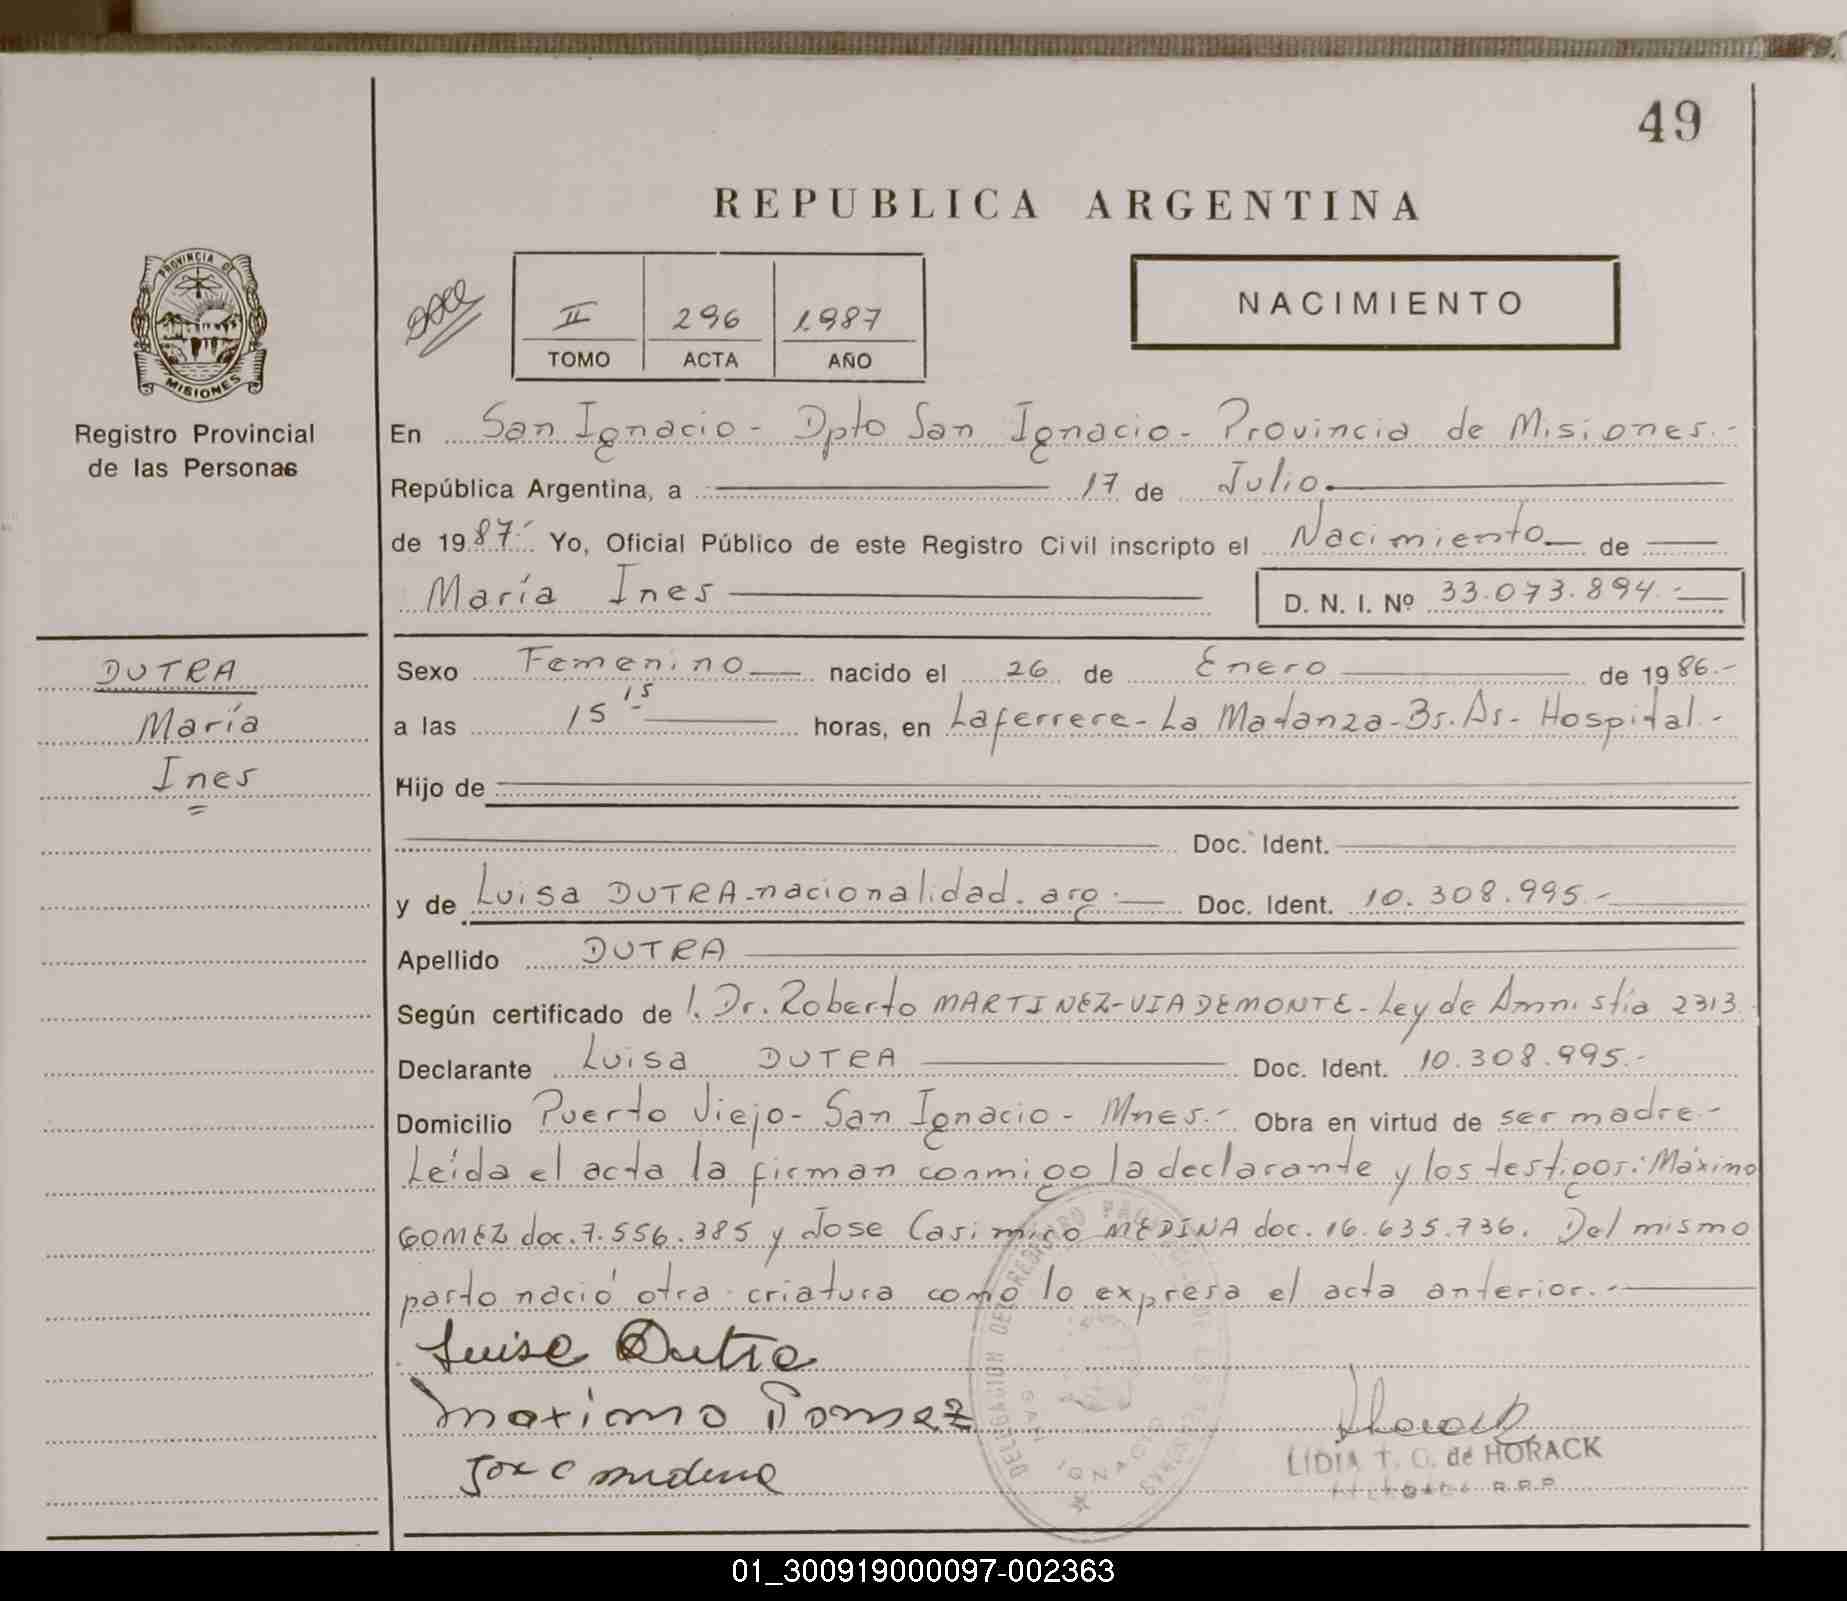 49
REPUBLICA ARGENTINA
PROVINCIA DE
MISIONES
II 296 1987
TOMO ACTA AÑO
NACIMIENTO
Registro Provincial
de las Personas
En San Ignacio - Dpto San Ignacio - Provincia de Misiones.-
República Argentina, a 17 de Julio.
de 1987.- Yo, Oficial Público de este Registro Civil inscripto el Nacimiento de
María Ines D. N. I. Nº 33.073.894.-
DUTRA
María
Ines
Sexo Femenino nacido el 26 de Enero de 1986.-
a las 15 15 horas, en Laferrere - La Matanza - Bs. As - Hospital.-
Hijo de
Doc. Ident.
y de Luisa DUTRA - nacionalidad. arg. Doc. Ident. 10.308.995.-
Apellido DUTRA
Según certificado de l. Dr. Roberto MARTINEZ - VIADEMONTE - Ley de Amnistía 2313
Declarante Luisa DUTRA Doc. Ident. 10.308.995.-
Domicilio Puerto Viejo - San Ignacio - Mnes.- Obra en virtud de ser madre.-
Leída el acta la firman conmigo la declarante y los testigos: Máximo
GOMEZ doc. 7.556.385 y Jose Casimiro MEDINA doc. 16.635.736. Del mismo
parto nació otra criatura como lo expresa el acta anterior.-
Luisa Dutra
Maximo Gomez
Jose C Medina
DELEGACION DEL REGISTRO PROVINCIAL DE LAS PERSONAS
SAN IGNACIO
LIDIA T. C. de HORACK
R.P.P.
01_300919000097-002363